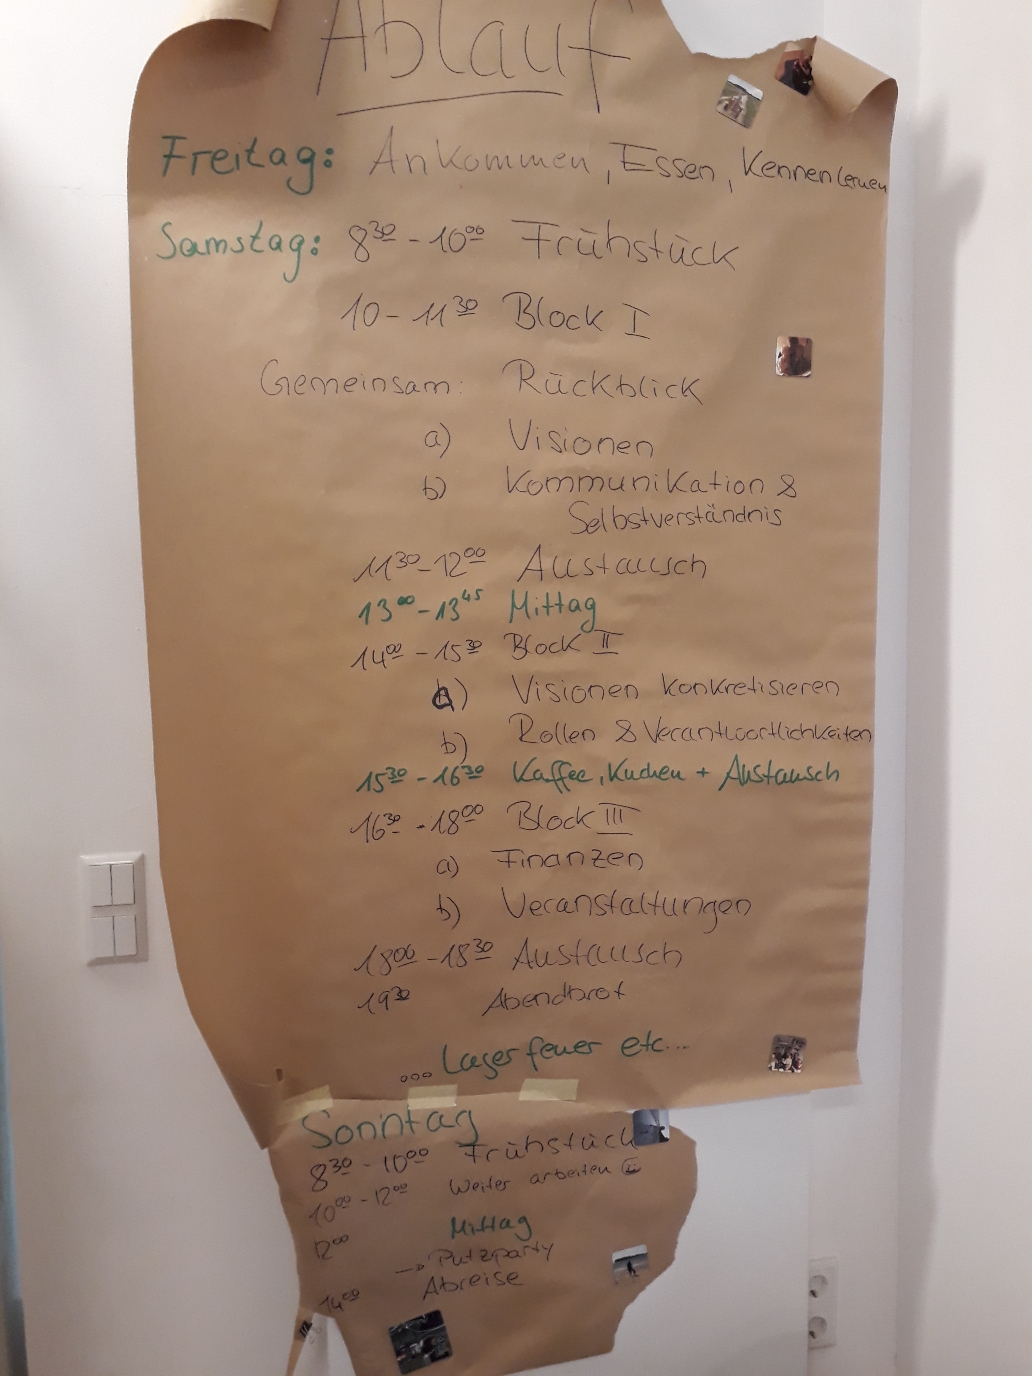 Ablauf
Freitag: Ankommen, Essen, Kennenlernen
Samstag: 8³⁰ - 10⁰⁰ Frühstück
10 - 11³⁰ Block I
Gemeinsam: Rückblick
a) Visionen
b) Kommunikation &
Selbstverständnis
11³⁰ - 12⁰⁰ Austausch
13⁰⁰ - 13⁴⁵ Mittag
14⁰⁰ - 15³⁰ Block II
a) Visionen konkretisieren
b) Rollen & Verantwortlichkeiten
15³⁰ - 16³⁰ Kaffee, Kuchen + Austausch
16³⁰ - 18⁰⁰ Block III
a) Finanzen
b) Veranstaltungen
18⁰⁰ - 18³⁰ Austausch
19³⁰ Abendbrot
... Lagerfeuer etc...
Sonntag
8³⁰ - 10⁰⁰ Frühstück
10⁰⁰ - 12⁰⁰ Weiter arbeiten
12⁰⁰ Mittag
→ Putzparty
14⁰⁰ Abreise